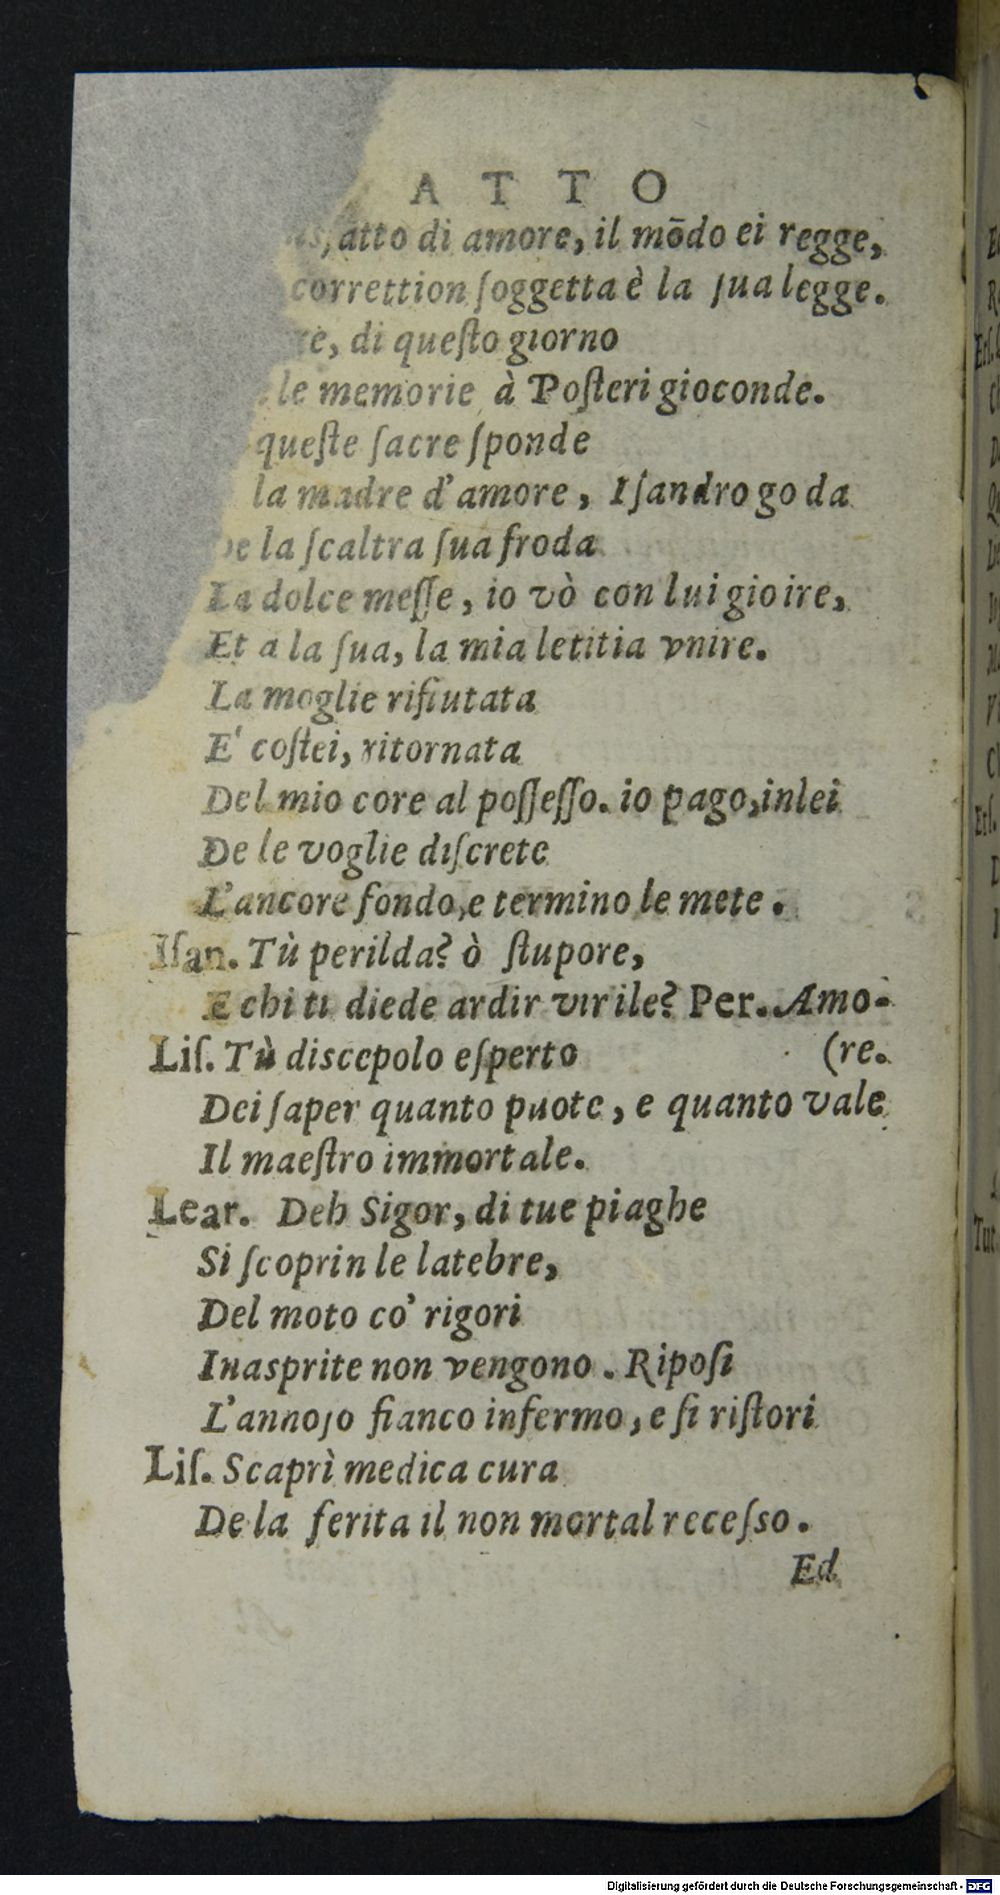 ATTO
atto di amore, il mōdo ei regge,
correttion ſoggetta è la ſua legge.
di queſto giorno
le memorie à Poſteri gioconde.
queſte ſacre ſponde
la madre d'amore, Iſandro goda
la ſcaltra ſua froda
La dolce meſſe, io vò con lui gioire,
Et a la ſua, la mia letitia vnire.
La moglie rifiutata
E' coſtei, ritornata
Del mio core al poſſeſſo. io pago, in lei
De le voglie diſcrete
L'ancore fondo, e termino le mete.
Iſan. Tù perilda? ò ſtupore,
E chi ti diede ardir virile? Per. Amo-
Liſ. Tù discepolo eſperto (re.
Dei ſaper quanto puote, e quanto vale
Il maeſtro immortale.
Lear. Deh Sigor, di tue piaghe
Si ſcoprin le latebre,
Del moto co' rigori
Inasprite non vengono. Ripoſi
L'annoſo fianco infermo, e ſi riſtori
Liſ. Scaprì medica cura
De la ferita il non mortal receſso.
Ed
Digitalisierung gefördert durch die Deutsche Forschungsgemeinschaft - DFG